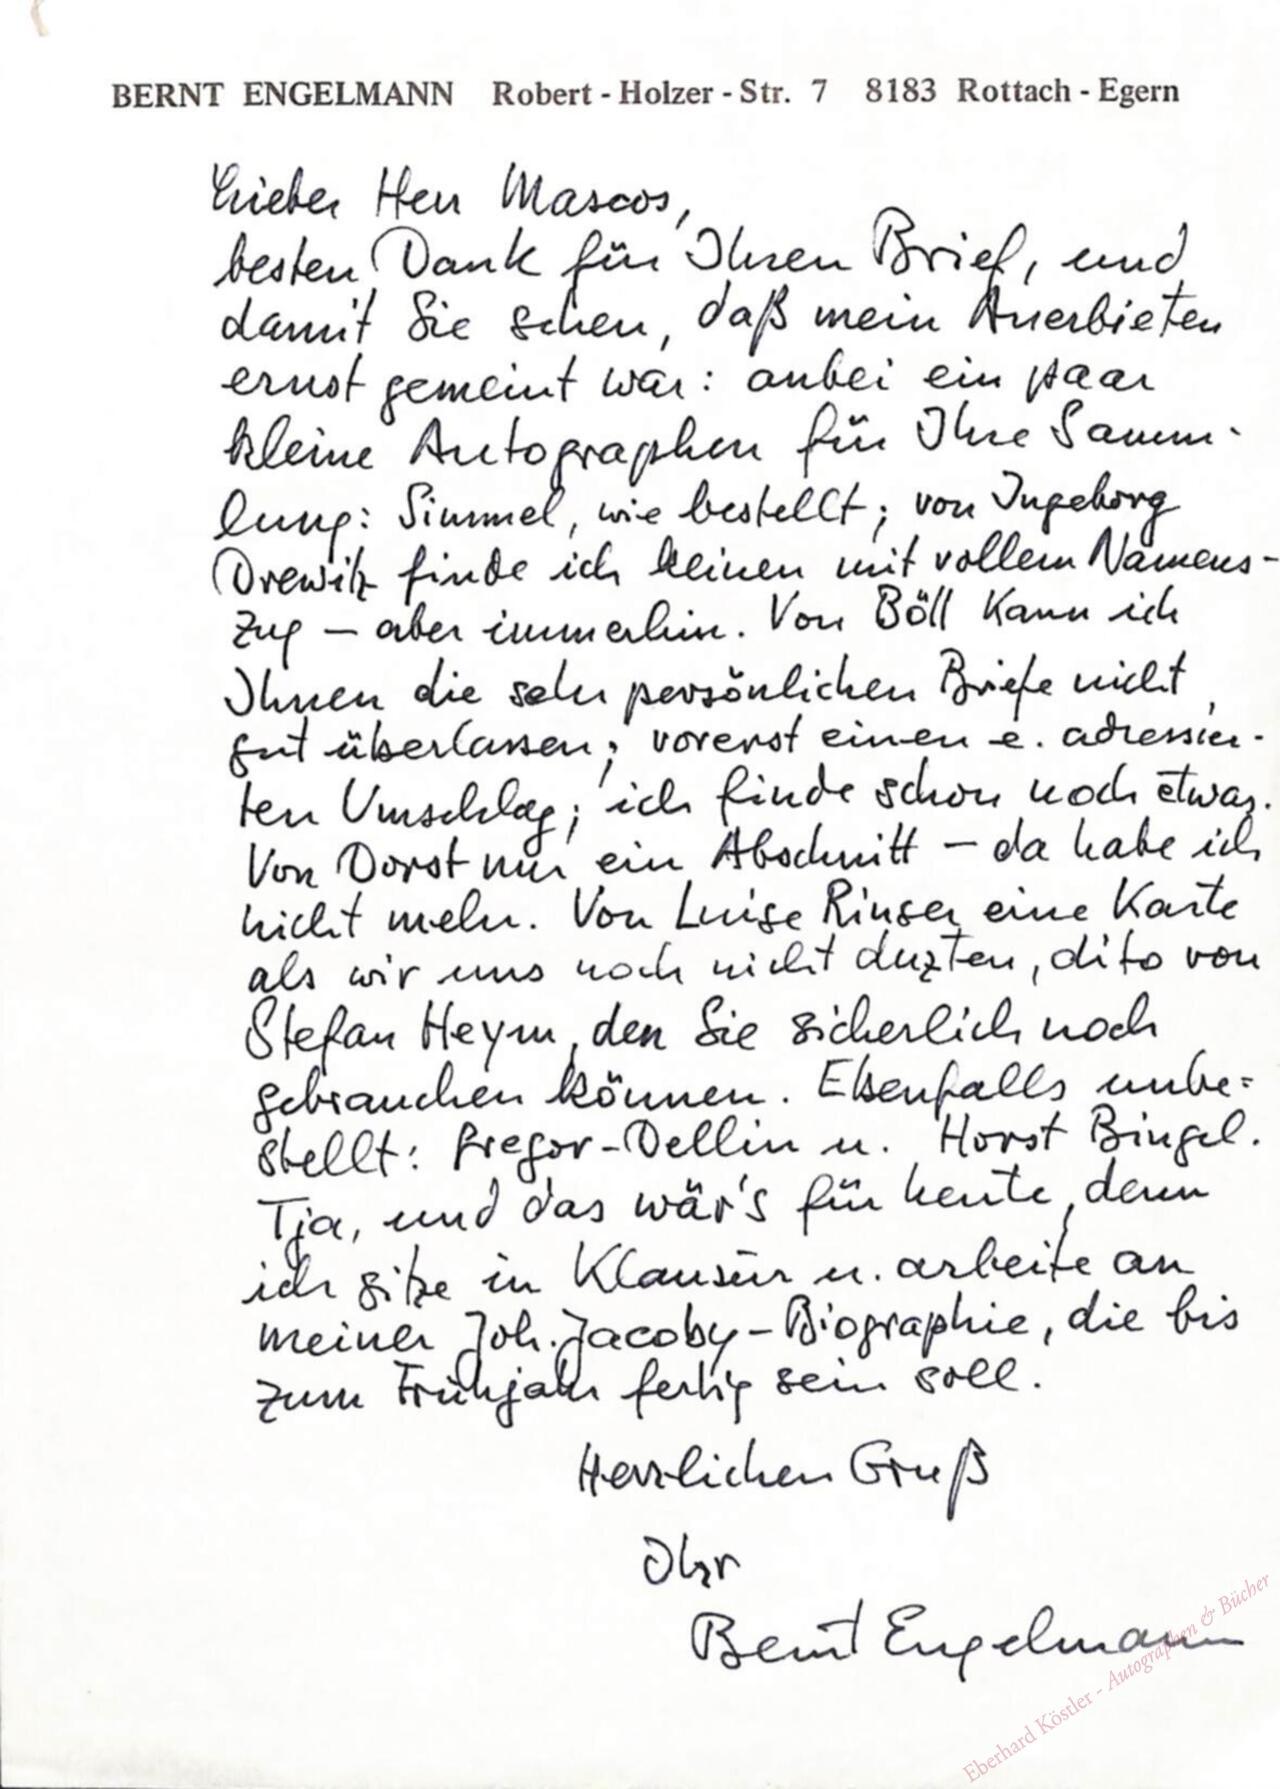 BERNT ENGELMANN Robert - Holzer - Str. 7 8183 Rottach - Egern
Lieber Herr Mascos,
besten Dank für Ihren Brief, und
damit Sie sehen, daß mein Anerbieten
ernst gemeint war: anbei ein paar
kleine Autographen für Ihre Samm-
lung: Simmel, wie bestellt; von Ingeborg
Drewitz finde ich keinen mit vollem Namens-
zug – aber immerhin. Von Böll kann ich
Ihnen die sehr persönlichen Briefe nicht
gut überlassen; vorerst einen e. adressier-
ten Umschlag; ich finde schon noch etwas.
Von Dorst nur ein Abschnitt – da habe ich
nicht mehr. Von Luise Rinser eine Karte
als wir uns noch nicht duzten, dito von
Stefan Heym, den Sie sicherlich noch
gebrauchen können. Ebenfalls unbe=
stellt: Gregor-Dellin u. Horst Bingel.
Tja, und das wär's für heute, denn
ich sitze in Klausur u. arbeite an
meiner Joh. Jacoby-Biographie, die bis
zum Frühjahr fertig sein soll.
Herzlichen Gruß
Ihr
Bernt Engelmann
Eberhard Köstler - Autographen & Bücher